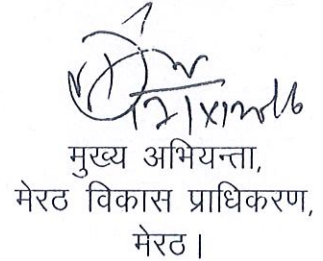 मुख्य अभियन्ता,
मेरठ विकास प्राधिकरण,
मेरठ।